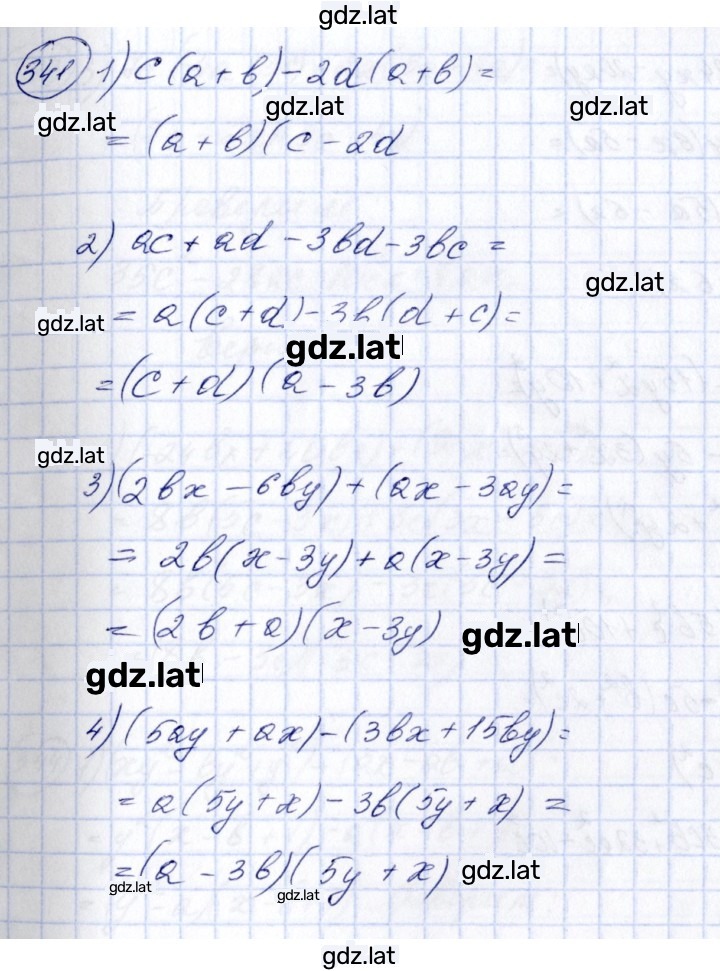 gdz.lat
341 1) c(a+b)-2d(a+b)=
gdz.lat gdz.lat gdz.lat
=(a+b)(c-2d
2) ac+ad-3bd-3bc=
gdz.lat
gdz.lat =a(c+d)-3b(d+c)=
gdz.lat
=(c+d)(a-3b)
gdz.lat
3)(2bx-6by)+(ax-3ay)=
=2b(x-3y)+a(x-3y)=
=(2b+a)(x-3y) gdz.lat
gdz.lat
4)(5ay+ax)-(3bx+15by)=
=a(5y+x)-3b(5y+x)=
=(a-3b)(5y+x) gdz.lat
gdz.lat gdz.lat
gdz.lat